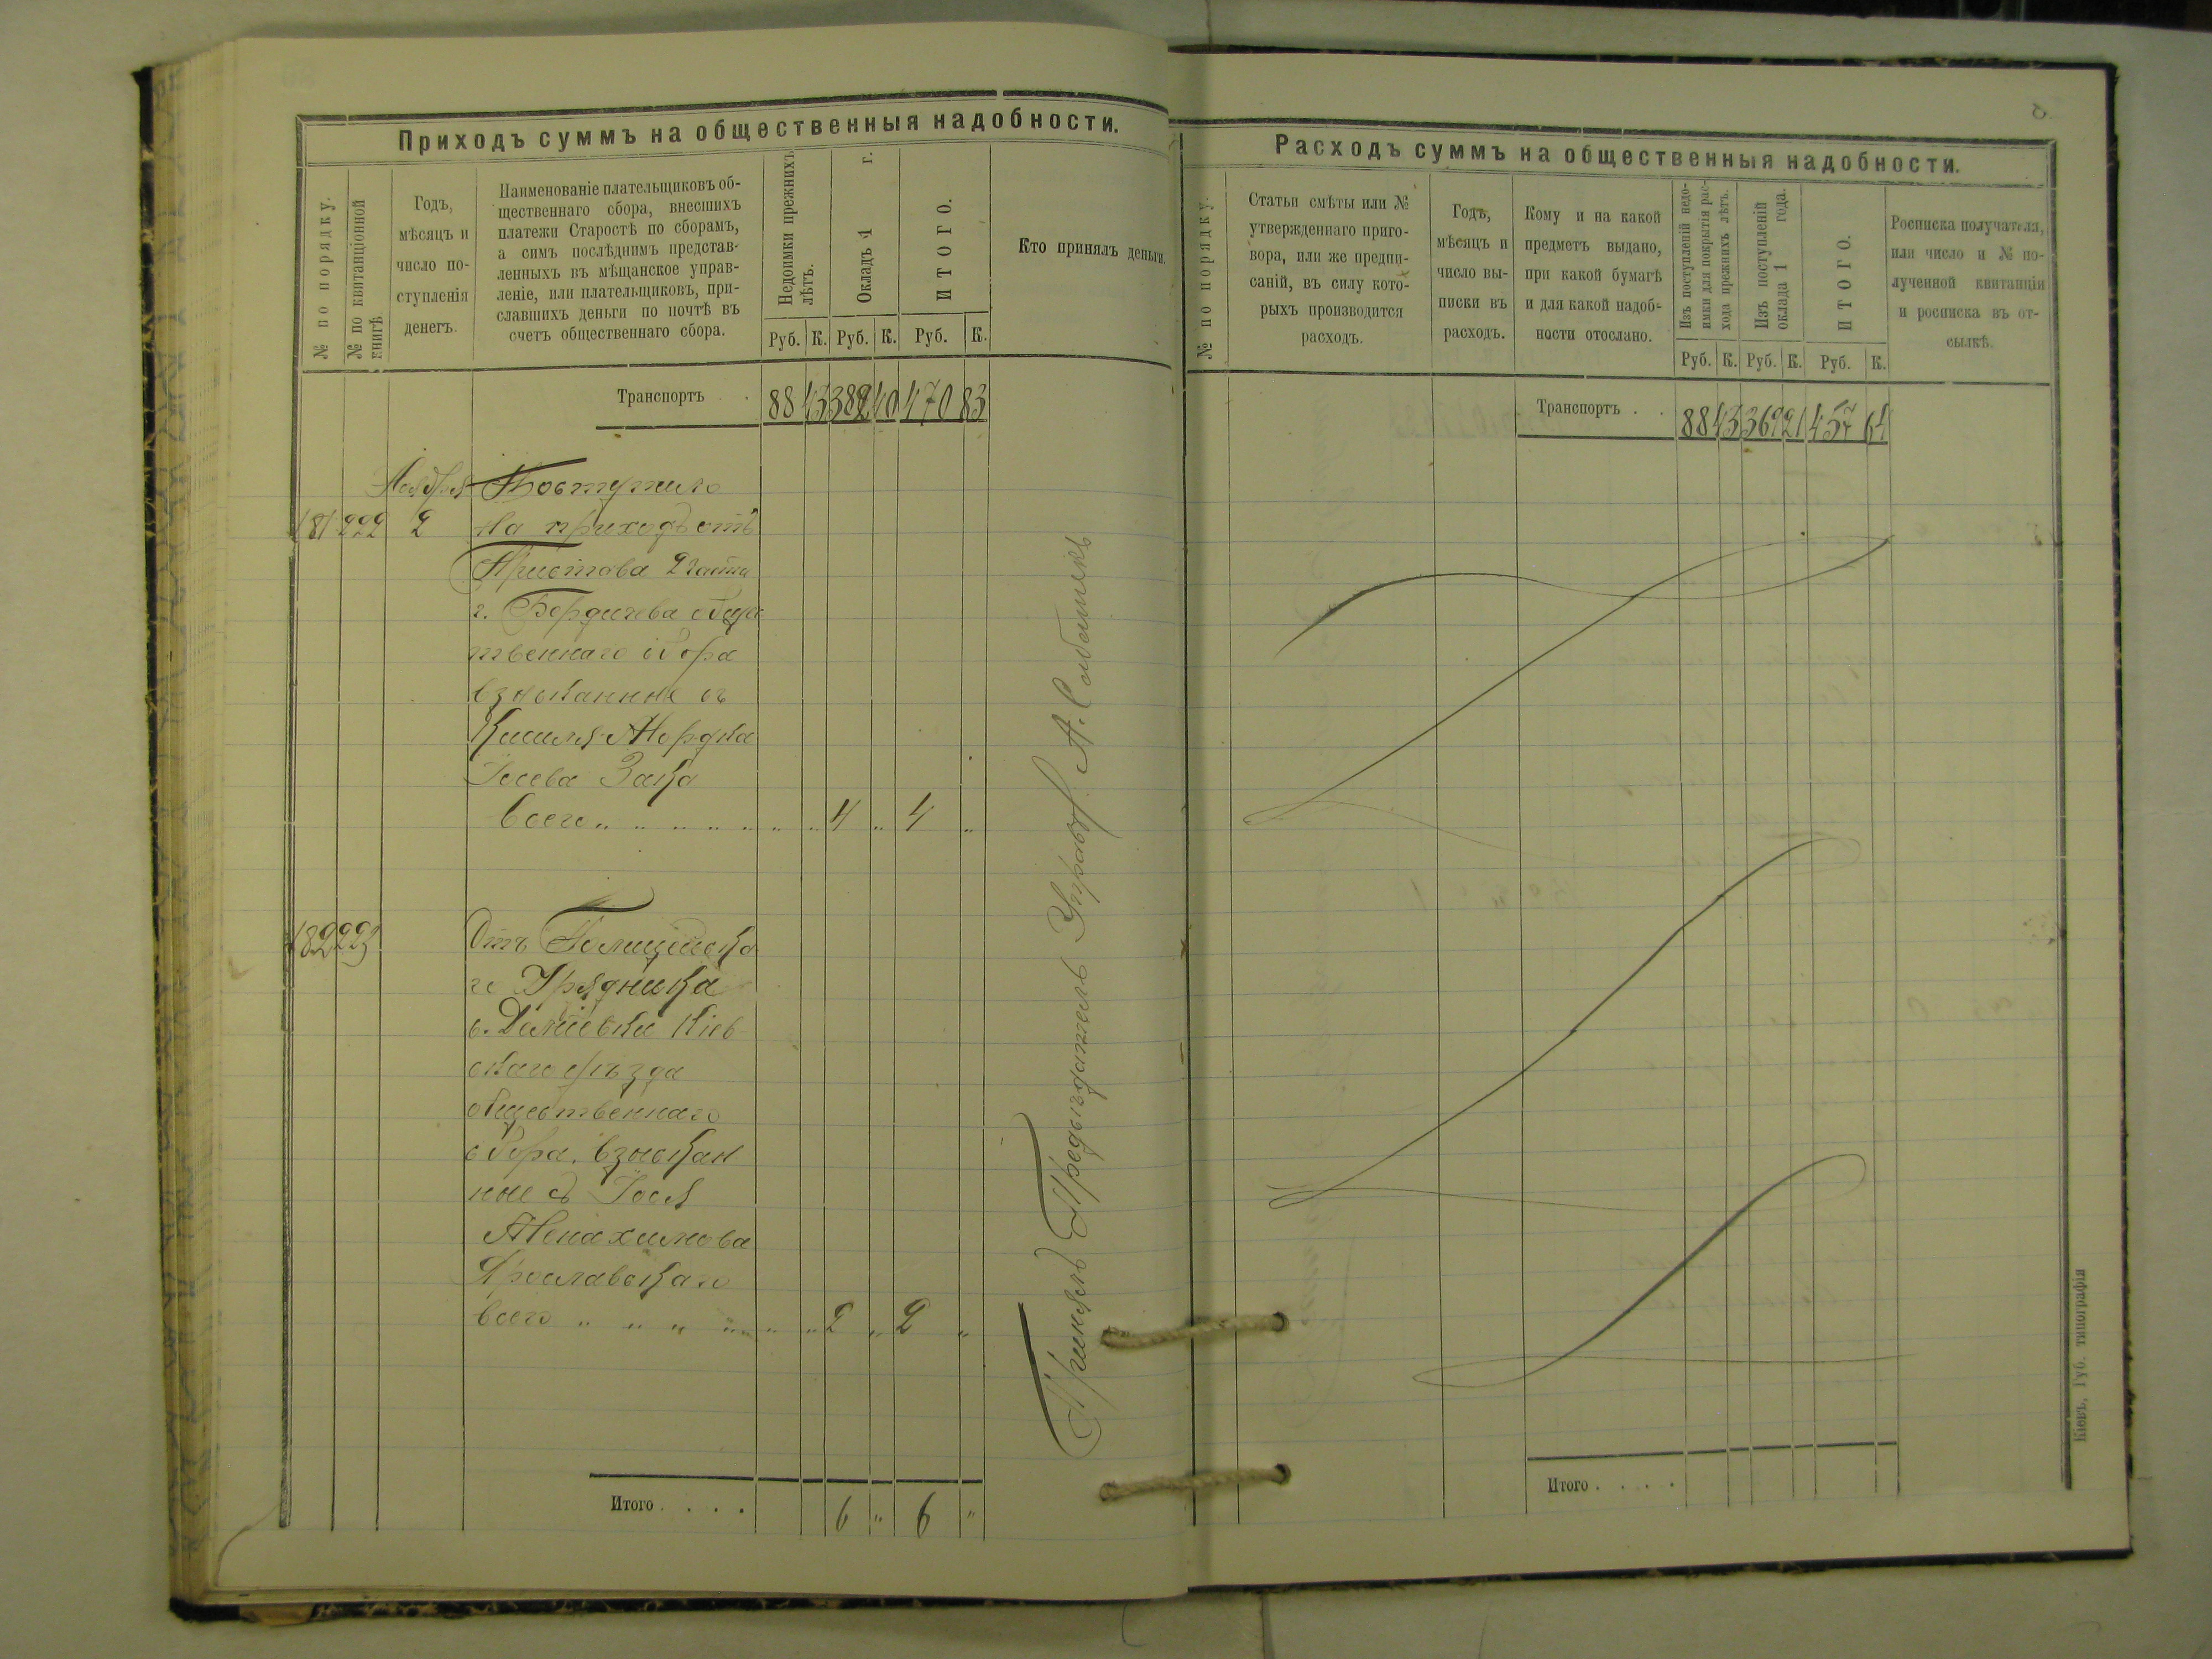 Приходъ суммъ на общественныя надобности.
№ по порядку.
№ по квитанціонной
книгѣ
Годъ,
мѣсяцъ и
число по-
ступленія
денегъ.
Наименованіе плательщиковъ об-
щественнаго сбора, внесшихъ
платежи Старостѣ по сборамъ,
а симъ послѣднимъ представ-
ленныхъ въ мѣщанское управ-
леніе, или плательщиковъ, при-
славшихъ деньги по почтѣ въ
счетъ общественнаго сбора.
Недоимки прежнихъ
лѣтъ.
Окладъ 1 г.
ИТОГО.
Кто принялъ деньги.
Руб. К. Руб. К. Руб. К.
Транспортъ . 88 43 382 40 470 83
Ноября Поступило
181 222 2 на приходъ отъ
Пристава 2 части
г. Бердичева общес
твеннаго сбора
взысканные съ
Кисиля-Мордка
Іосева Зака
всего „ „ „ „ „ „ „ 4 „ 4 „
182 223 Отъ Полицейска
го Урядника
с. Деміевки Кіев
скаго уѣзда
общественнаго
сбора, взыскан
ные съ Іося
Менахимова
Ярославскаго
всего „ „ „ „ „ „ 2 „ 2 „
Итого . . . . 6 „ 6 „
Принялъ Предсѣдатель Управы
Расходъ суммъ на общественныя надобности.
№ по порядку.
Статьи смѣты или №
утвержденнаго приго-
вора, или же предпи-
саній, въ силу кото-
рыхъ производится
расходъ.
Годъ,
мѣсяцъ и
число вы-
писки въ
расходъ.
Кому и на какой
предметъ выдано,
при какой бумагѣ
и для какой надоб-
ности отослано.
Изъ поступленій недо-
имки для покрытія рас-
хода прежнихъ лѣтъ.
Изъ поступленій
оклада 1 года.
ИТОГО.
Росписка получателя,
или число и № по-
лученной квитанціи
и росписка въ от-
сылкѣ.
Руб. К. Руб. К. Руб. К.
Транспортъ . . 88 43 369 21 457 64
Итого . . . .
Кіевъ, Губ. типографія